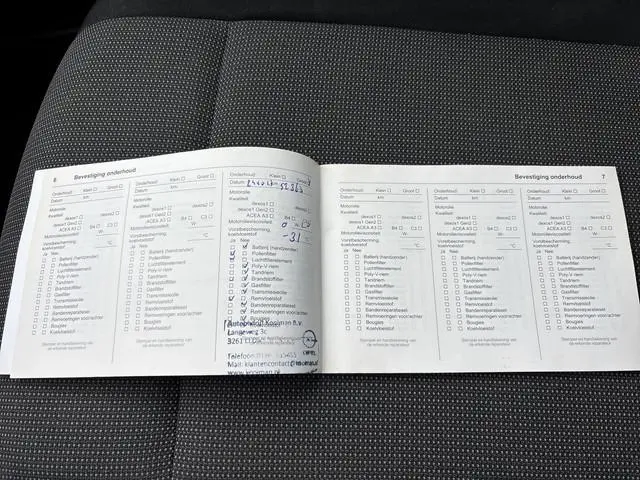 6 Bevestiging onderhoud
Onderhoud: Klein Groot
Datum km
Motorolie
Kwaliteit: dexos1 dexos2
dexos1 Gen2
ACEA A3 B4 C3
Motorolieviscositeit: W-
Vorstbescherming koelvloeistof °C
Ja Nee
Batterij (handzender)
Pollenfilter
Luchtfilterelement
Poly-V riem
Tandriem
Brandstoffilter
Gasfilter
Transmissieolie
Remvloeistof
Bandenreparatieset
Remvoeringen voor/achter
Bougies
Koelvloeistof
Stempel en handtekening van de erkende reparateur
Onderhoud: Klein Groot
Datum km
Motorolie
Kwaliteit: dexos1 dexos2
dexos1 Gen2
ACEA A3 B4 C3
Motorolieviscositeit: W-
Vorstbescherming koelvloeistof °C
Ja Nee
Batterij (handzender)
Pollenfilter
Luchtfilterelement
Poly-V riem
Tandriem
Brandstoffilter
Gasfilter
Transmissieolie
Remvloeistof
Bandenreparatieset
Remvoeringen voor/achter
Bougies
Koelvloeistof
Stempel en handtekening van de erkende reparateur
Onderhoud: Klein Groot
Datum
Motorolie
Kwaliteit: dexos1 dexos2
dexos1 Gen2
ACEA A3 B4 C3
Motorolieviscositeit: 0
Vorstbescherming koelvloeistof -31
Ja Nee
Batterij (handzender)
Pollenfilter
Luchtfilterelement
Poly-V riem
Tandriem
Brandstoffilter
Gasfilter
Transmissieolie
Remvloeistof
Bandenreparatieset
Remvoeringen voor/achter
Bougies
Autobedrijf Kooiman B.V.
Langeweg 3c
3261
Telefoon
Mail: klantencontact
www.kooiman.nl
Bevestiging onderhoud 7
Onderhoud: Klein Groot
Datum km
Motorolie
Kwaliteit: dexos1 dexos2
dexos1 Gen2
ACEA A3 B4 C3
Motorolieviscositeit: W-
Vorstbescherming koelvloeistof °C
Ja Nee
Batterij (handzender)
Pollenfilter
Luchtfilterelement
Poly-V riem
Tandriem
Brandstoffilter
Gasfilter
Transmissieolie
Remvloeistof
Bandenreparatieset
Remvoeringen voor/achter
Bougies
Koelvloeistof
Stempel en handtekening van de erkende reparateur
Onderhoud: Klein Groot
Datum km
Motorolie
Kwaliteit: dexos1 dexos2
dexos1 Gen2
ACEA A3 B4 C3
Motorolieviscositeit: W-
Vorstbescherming koelvloeistof °C
Ja Nee
Batterij (handzender)
Pollenfilter
Luchtfilterelement
Poly-V riem
Tandriem
Brandstoffilter
Gasfilter
Transmissieolie
Remvloeistof
Bandenreparatieset
Remvoeringen voor/achter
Bougies
Koelvloeistof
Stempel en handtekening van de erkende reparateur
Onderhoud: Klein Groot
Datum km
Motorolie
Kwaliteit: dexos1 dexos2
dexos1 Gen2
ACEA A3 B4 C3
Motorolieviscositeit: W-
Vorstbescherming koelvloeistof °C
Ja Nee
Batterij (handzender)
Pollenfilter
Luchtfilterelement
Poly-V riem
Tandriem
Brandstoffilter
Gasfilter
Transmissieolie
Remvloeistof
Bandenreparatieset
Remvoeringen voor/achter
Bougies
Koelvloeistof
Stempel en handtekening van de erkende reparateur